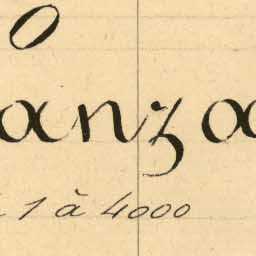 O
anza
1 à 4000